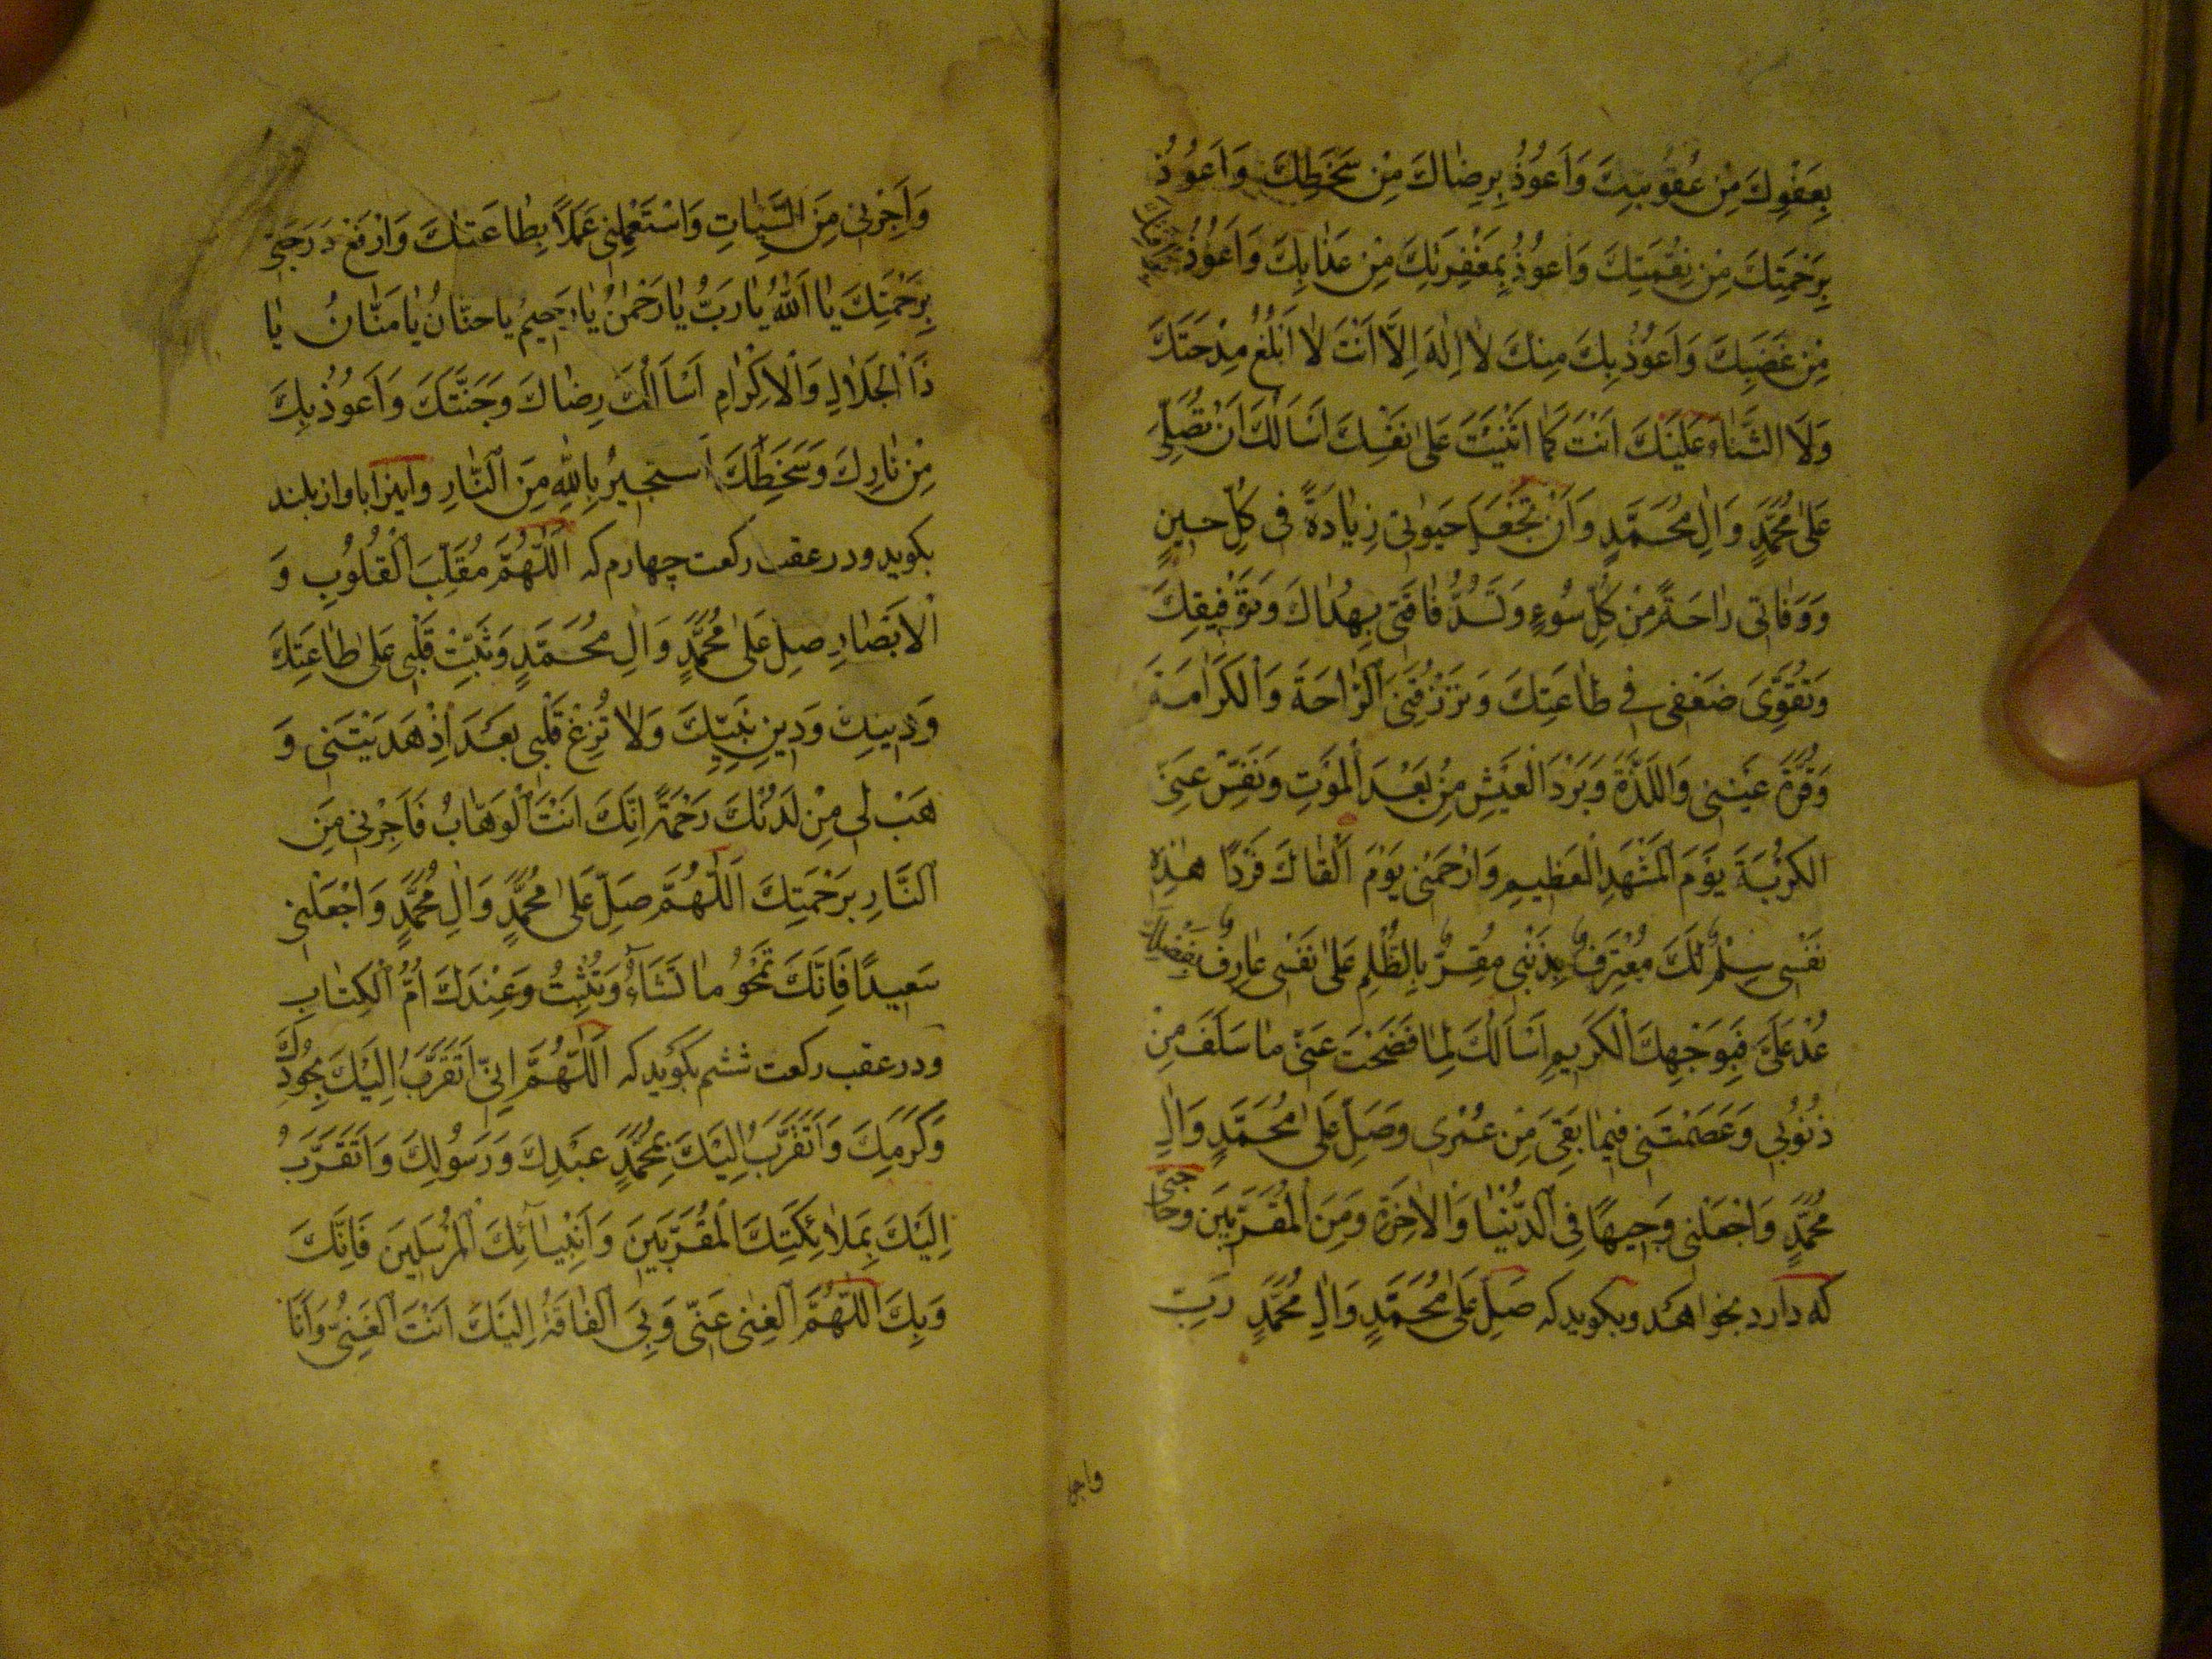 بِعَفْوِكَ مِنْ عُقُوبَتِكَ وَاَعُوذُ بِرِضَاكَ مِنْ سَخَطِكَ وَاَعُوذُ
بِرَحْمَتِكَ مِنْ نِقْمَتِكَ وَاَعُوذُ بِمَغْفِرَتِكَ مِنْ عَذَابِكَ وَاَعُوذُ
مِنْ غَضَبِكَ وَاَعُوذُ بِكَ مِنْكَ لاٰ اِلٰهَ اِلَّا اَنْتَ لاٰ اَبْلُغُ مِدْحَتَكَ
وَلَا الثَّنٰاءَ عَلَيْكَ اَنْتَ كَمٰا اَثْنَيْتَ عَلىٰ نَفْسِكَ اَسْاَلُكَ اَنْ تُصَلِّىَ
عَلىٰ مُحَمَّدٍ وَاٰلِ مُحَمَّدٍ وَاَنْ تَجْعَلَ حَيوٰتى زِيٰادَةً فى كُلِّ حينٍ
وَوَفٰاتى رٰاحَةً مِنْ كُلِّ سُوءٍ وَتَسُدَّ فٰاقَتى بِهُدٰاكَ وَتَوْفيقِكَ
وَتُقَوِّىَ ضَعْفى فى طٰاعَتِكَ وَتَرْزُقَنىَ الرّٰاحَةَ وَالْكَرٰامَةَ
وَقُرَّةَ عَيْنى وَاللَّذَّةَ وَبَرْدَ الْعَيْشِ مِنْ بَعْدِ الْمَوْتِ وَنَفِّسْ عَنّى
الْكُرْبَةَ يَوْمَ الْمَشْهَدِ الْعَظيمِ وَارْحَمْنى يَوْمَ اَلْقٰاكَ فَرْدًا هٰذِهِ
نَفْسى سِلْمٌ لَكَ مُعْتَرِفٌ بِذَنْبى مُقِرٌّ بِالظُّلْمِ عَلىٰ نَفْسى عٰارِفٌ بِفَضْلِكَ
عُدْ عَلَىَّ فَبِوَجْهِكَ الْكَريمِ اَسْاَلُكَ لَمٰا فَصَحْتَ عَنّى مٰا سَلَفَ مِنْ
ذُنُوبى وَعَصَمْتَنى فيمٰا بَقِىَ مِنْ عُمْرى وَصَلِّ عَلىٰ مُحَمَّدٍ وَاٰلِ
مُحَمَّدٍ وَاجْعَلْنى وَجيهًا فِى الدُّنْيٰا وَالْاٰخِرَةِ وَمِنَ الْمُقَرَّبينَ وحاجتى
كه دارد بخواهد وبكويد كه صَلِّ عَلىٰ مُحَمَّدٍ وَاٰلِ مُحَمَّدٍ رَبِّ
واجر
وَاَجِرْنى مِنَ السَّيِّئٰاتِ وَاسْتَعْمِلْنى عَمَلًا بِطٰاعَتِكَ وَارْفَعْ دَرَجَتى
بِرَحْمَتِكَ يٰا اَللّٰهُ يٰا رَبُّ يٰا رَحْمٰنُ يٰا رَحيمُ يٰا حَنّٰانُ يٰا مَنّٰانُ يٰا
ذَا الْجَلاٰلِ وَالْاِكْرٰامِ اَسْاَلُكَ رِضٰاكَ وَجَنَّتَكَ وَاَعُوذُ بِكَ
مِنْ نٰارِكَ وَسَخَطِكَ اَسْتَجيرُ بِاللّٰهِ مِنَ النّٰارِ واينرا باواز بلند
بكويد ودر عقب ركعت چهارم كه اَللّٰهُمَّ مُقَلِّبَ الْقُلُوبِ وَ
الْاَبْصٰارِ صَلِّ عَلىٰ مُحَمَّدٍ وَاٰلِ مُحَمَّدٍ وَثَبِّتْ قَلْبى عَلىٰ طٰاعَتِكَ
وَدينِكَ وَدينِ نَبِيِّكَ وَلاٰ تُزِغْ قَلْبى بَعْدَ اِذْ هَدَيْتَنى وَ
هَبْ لى مِنْ لَدُنْكَ رَحْمَةً اِنَّكَ اَنْتَ الْوَهّٰابُ فَاَجِرْنى مِنَ
النّٰارِ بِرَحْمَتِكَ اَللّٰهُمَّ صَلِّ عَلىٰ مُحَمَّدٍ وَاٰلِ مُحَمَّدٍ وَاجْعَلْنى
سَعيدًا فَاِنَّكَ تَمْحُو مٰا تَشٰاءُ وَتُثْبِتُ وَعِنْدَكَ اُمُّ الْكِتٰابِ
ودر عقب ركعت ششم بكويد كه اَللّٰهُمَّ اِنّى اَتَقَرَّبُ اِلَيْكَ بِجُودِكَ
وَكَرَمِكَ وَاَتَقَرَّبُ اِلَيْكَ بِمُحَمَّدٍ عَبْدِكَ وَرَسُولِكَ وَاَتَقَرَّبُ
اِلَيْكَ بِمَلاٰئِكَتِكَ الْمُقَرَّبينَ وَاَنْبِيٰائِكَ الْمُرْسَلينَ فَاِنَّكَ
وَبِكَ اَللّٰهُمَّ الْغِنىٰ عَنّى وَبِىَ الْفٰاقَةُ اِلَيْكَ اَنْتَ الْغَنِىُّ وَاَنَا